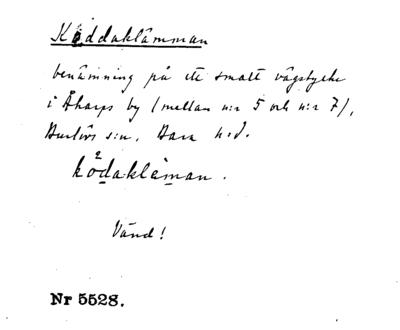 Köddaklämman
benämning på ett smalt vägstycke
i Åkarps by (mellan n:r 5 och n:r 7),
Burlövs s:n, Bara h:d.
ködakläman.
Vänd!
Nr 5528.